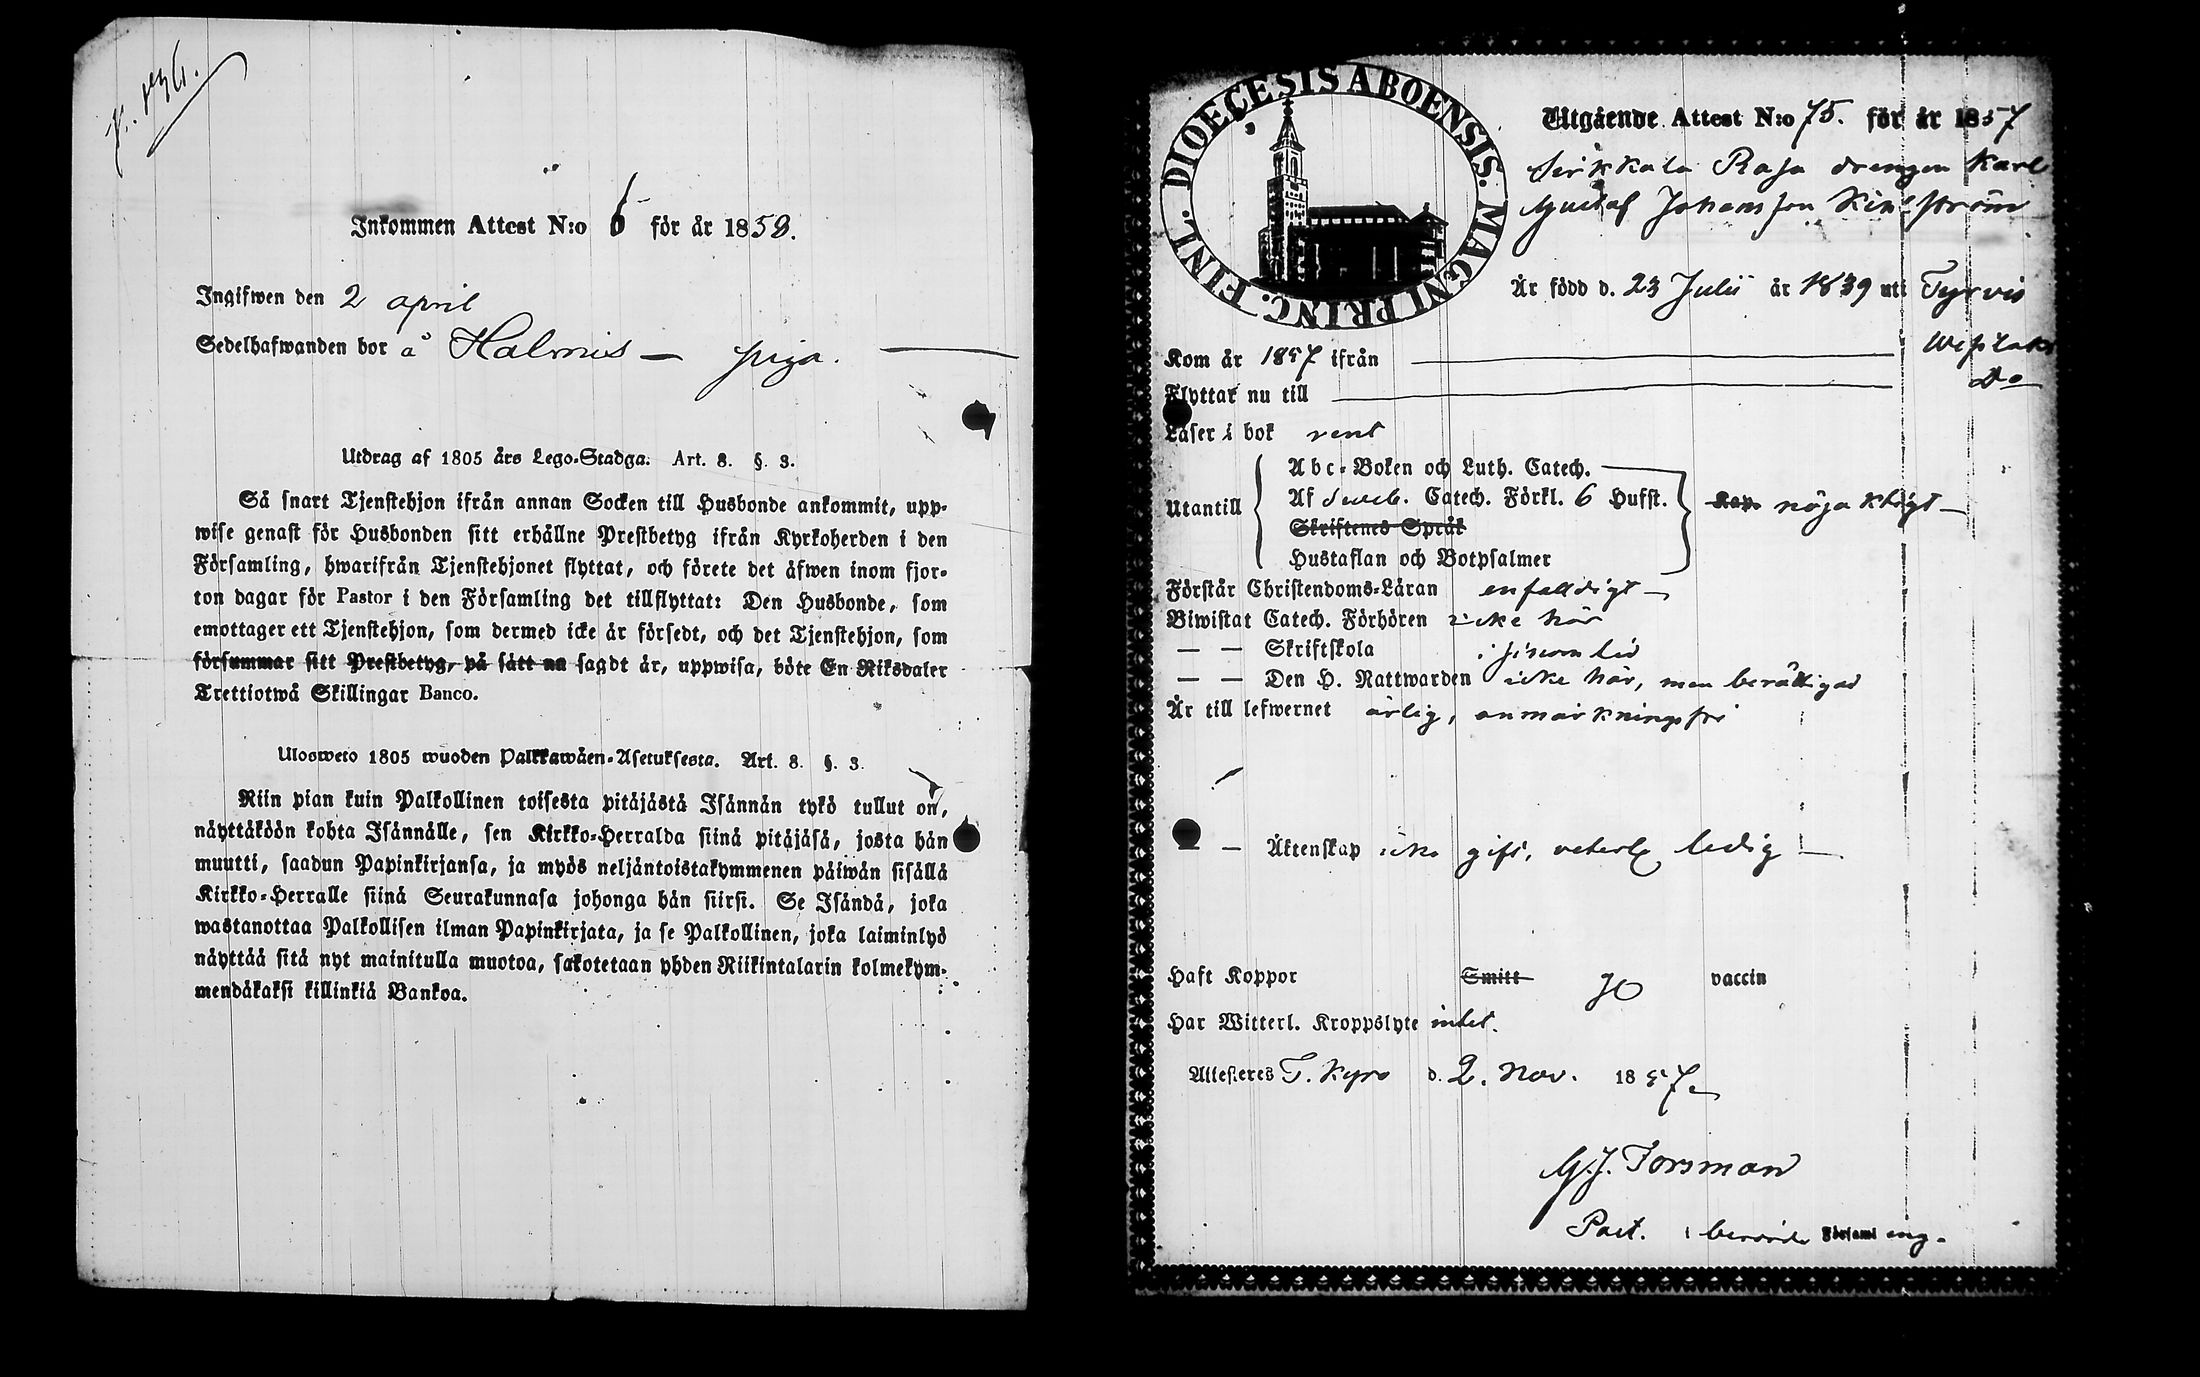 Inkommen Attest N:o 6 för år 1858.
Ingifwen den 2 april
Sedelhafwanden bor å Halmis — piga.
Utdrag af 1805 års Lego-Stadga. Art. 8. §. 3.
Så snart Tjenstehjon ifrån annan Socken till Husbonde ankommit, upp-
wise genast för Husbonden sitt erhållne Prestbetyg ifrån Kyrkoherden i den
Församling, hwarifrån Tjenstehjonet flyttat, och förete det äfwen inom fjor-
ton dagar för Pastor i den Församling det tillflyttat: Den Husbonde, som
emottager ett Tjenstehjon, som dermed icke är försedt, och det Tjenstehjon, som
försummar sitt Prestbetyg, på sätt nu sagdt är, uppwisa, böte En Riksdaler
Trettiotwå Skillingar Banco.
Ulosweto 1805 wuoden Palkkawäen-Asetuksesta. Art. 8. §. 3.
Niin pian kuin Palkollinen toisesta pitäjästä Isännän tykö tullut on,
näyttäköön kohta Isännälle, sen Kirkko-Herralda siinä pitäjäsä, josta hän
muutti, saadun Papinkirjansa, ja myös neljäntoistakymmenen päiwän sisällä
Kirkko-Herralle siinä Seurakunnasa johonga hän siirsi. Se Isändä, joka
wastanottaa Palkollisen ilman Papinkirjata, ja se Palkollinen, joka laiminlyö
näyttää sitä nyt mainitulla muotoa, sakotetaan yhden Riikintalarin kolmekym-
mendäkaksi killinkiä Bankoa.
DIOECESIS ABOENSIS. MAGNI PRINC. FINL.
Utgående Attest N:o 75. för år 1857
Sirkkala Raja drengen Karl
Gustaf Johansson ström
Är född d. 23 Julii år 1839 uti Tyrvis
Kom år 1857 ifrån — Wesilaks
Flyttar nu till — Do
Läser i bok rent
Utantill
Abc-Boken och Luth. Catech.
Af Sveb. Catech. Förkl. 6 Hufst.
Skriftenes Språk
Hustaflan och Botpsalmer
Kap. nöjaktigt —
Förstår Christendoms-Läran enfalldigt —
Biwistat Catech. Förhören icke här
— — Skriftskola i sinom tid
— — Den H. Nattwarden icke här, men berättigad
Är till lefwernet ärlig, anmärkningsfri
— — Äktenskap icke gift, veterl. ledig —
Haft Koppor Smitt jo vaccin
Har Witterl. Kroppslyte intet.
Attesteras T. Kyro d. 2. Nov. 1857
G. J. Forsman
Past. i berörde Församling.